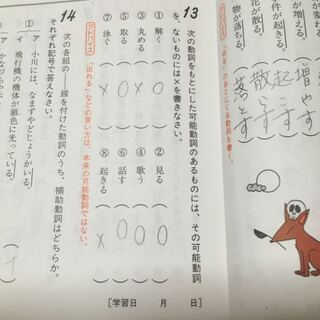 が変わる。
増やす
件が起きる。
起こす
花が散る。
散らす
物が落ちる。
落とす
13 次の動詞をもとにした可能動詞のあるものには、その可能動詞
を、ないものには×を書きなさい。
① 解く（○） ② 見る（
③ 丸める（×） ④ 歌う（○）
⑤ 取る（○） ⑥ 話す（○）
⑦ 泳ぐ（×） ⑧ 起きる（×）
アドバイス 「出れる」などの言い方は、本来の可能動詞ではない。
14 次の各組の――線を付けた動詞のうち、補助動詞はどちらか。
それぞれ記号で答えなさい。
① ア 小川には、なまずやどじょうがいる。
イ 飛行機の機体が銀色に光っている。（イ
［学習日　月　日］